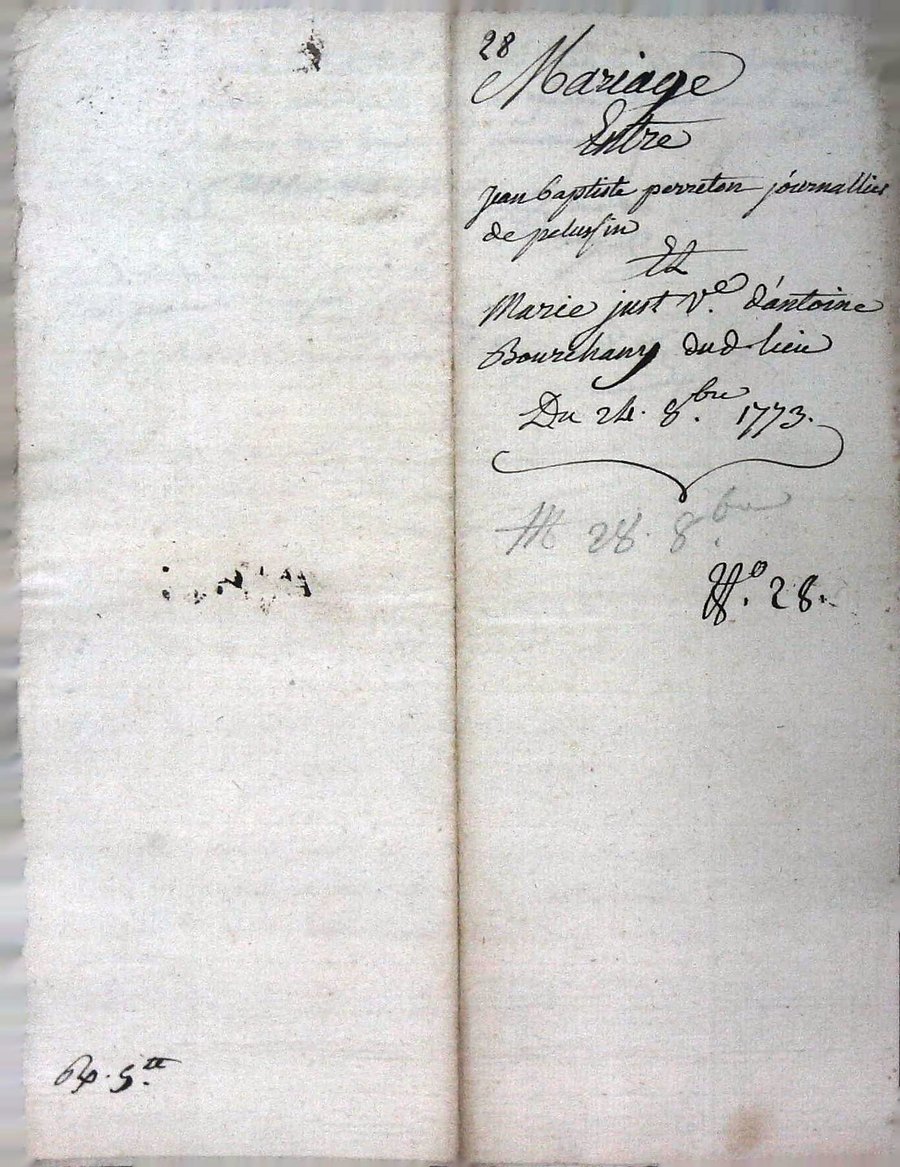 28
Mariage
Entre
jean baptiste perreton journallier
de pelussin
Et
Marie just Ve. d'antoine
Bourchany dud lieu
Du 24. 8.bre 1773.
28. 8.bre
No. 28.
5.tt